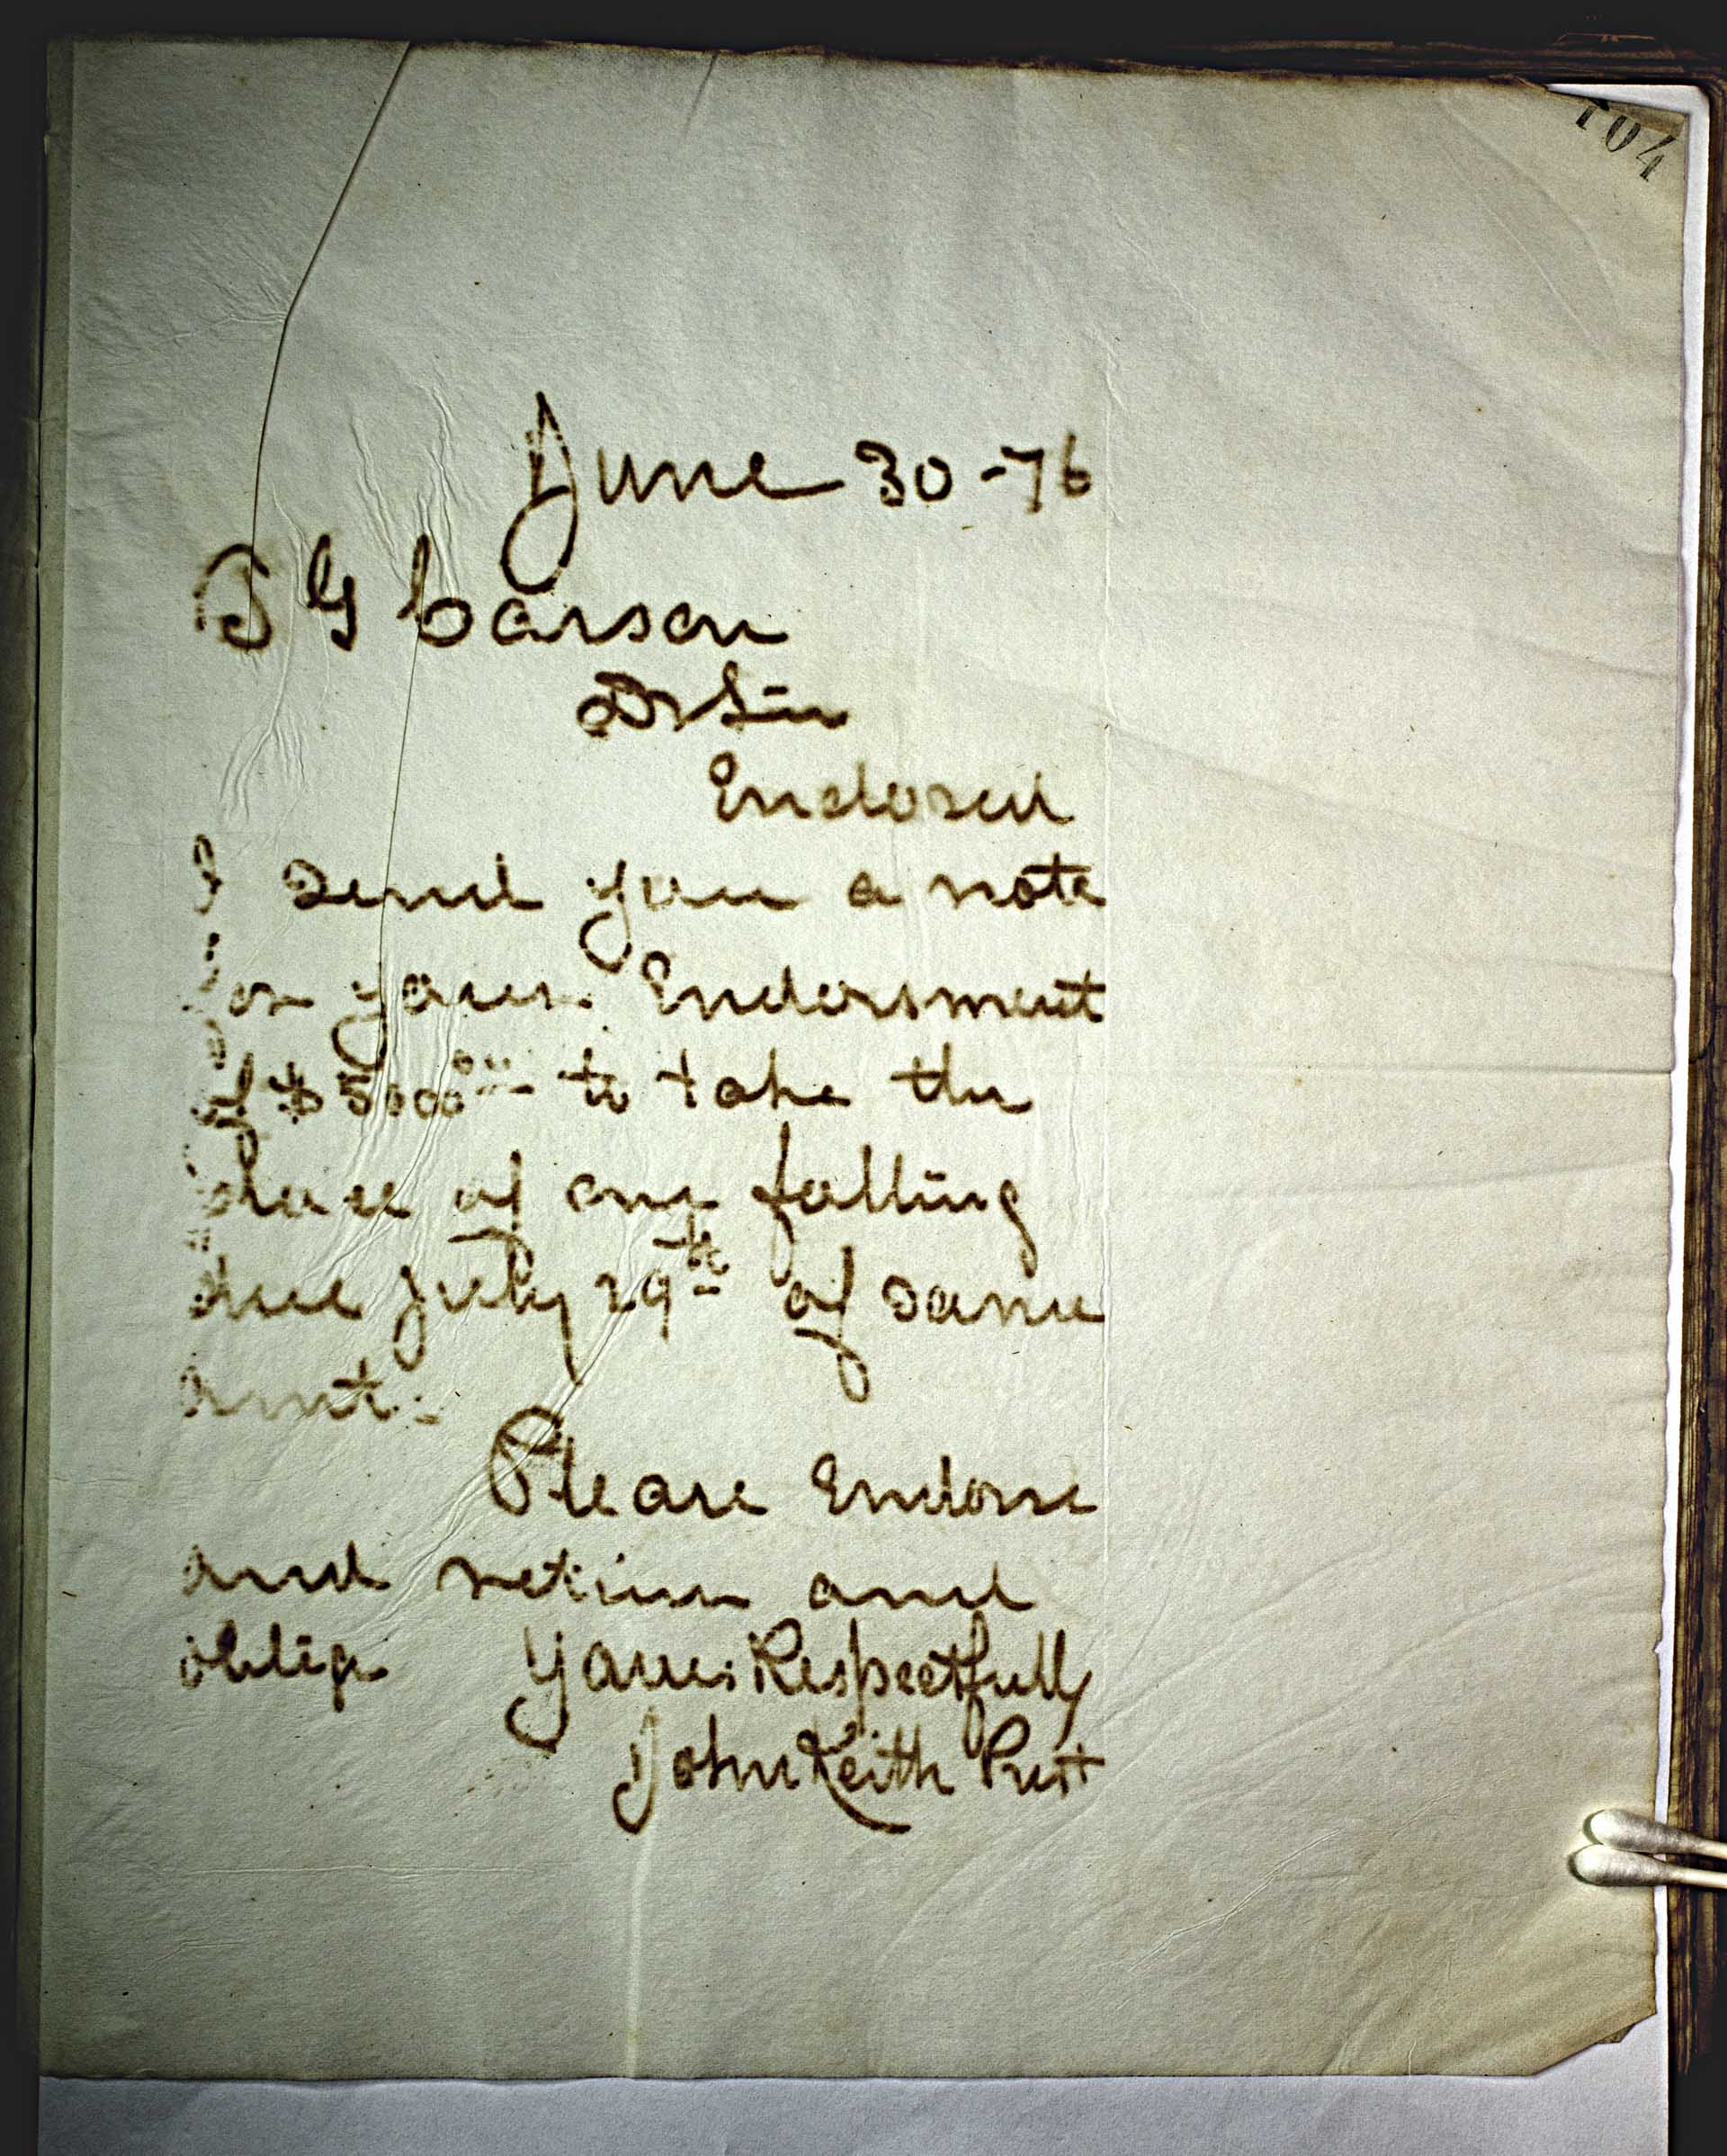 104
June 30-76
T G Carson
Dr Sir
Enclosed
I send you a note
for your Endorsment
of $5000 00 to take the
place of one falling
due July 29th of same
amt.
Please Endorse
and return and
oblige Yours Respectfully
John Keith Prest